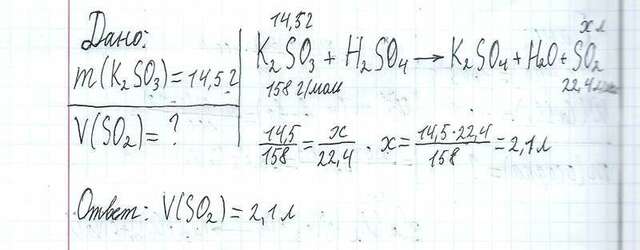 Дано:
m(K₂SO₃)=14,5г
V(SO₂)=?
14,5г
x л
K₂SO₃ + H₂SO₄ → K₂SO₄ + H₂O + SO₂
158 г/моль
22,4
14,5/158 = x/22,4 . x = 14,5·22,4/158 = 2,1л
Ответ: V(SO₂) = 2,1 л